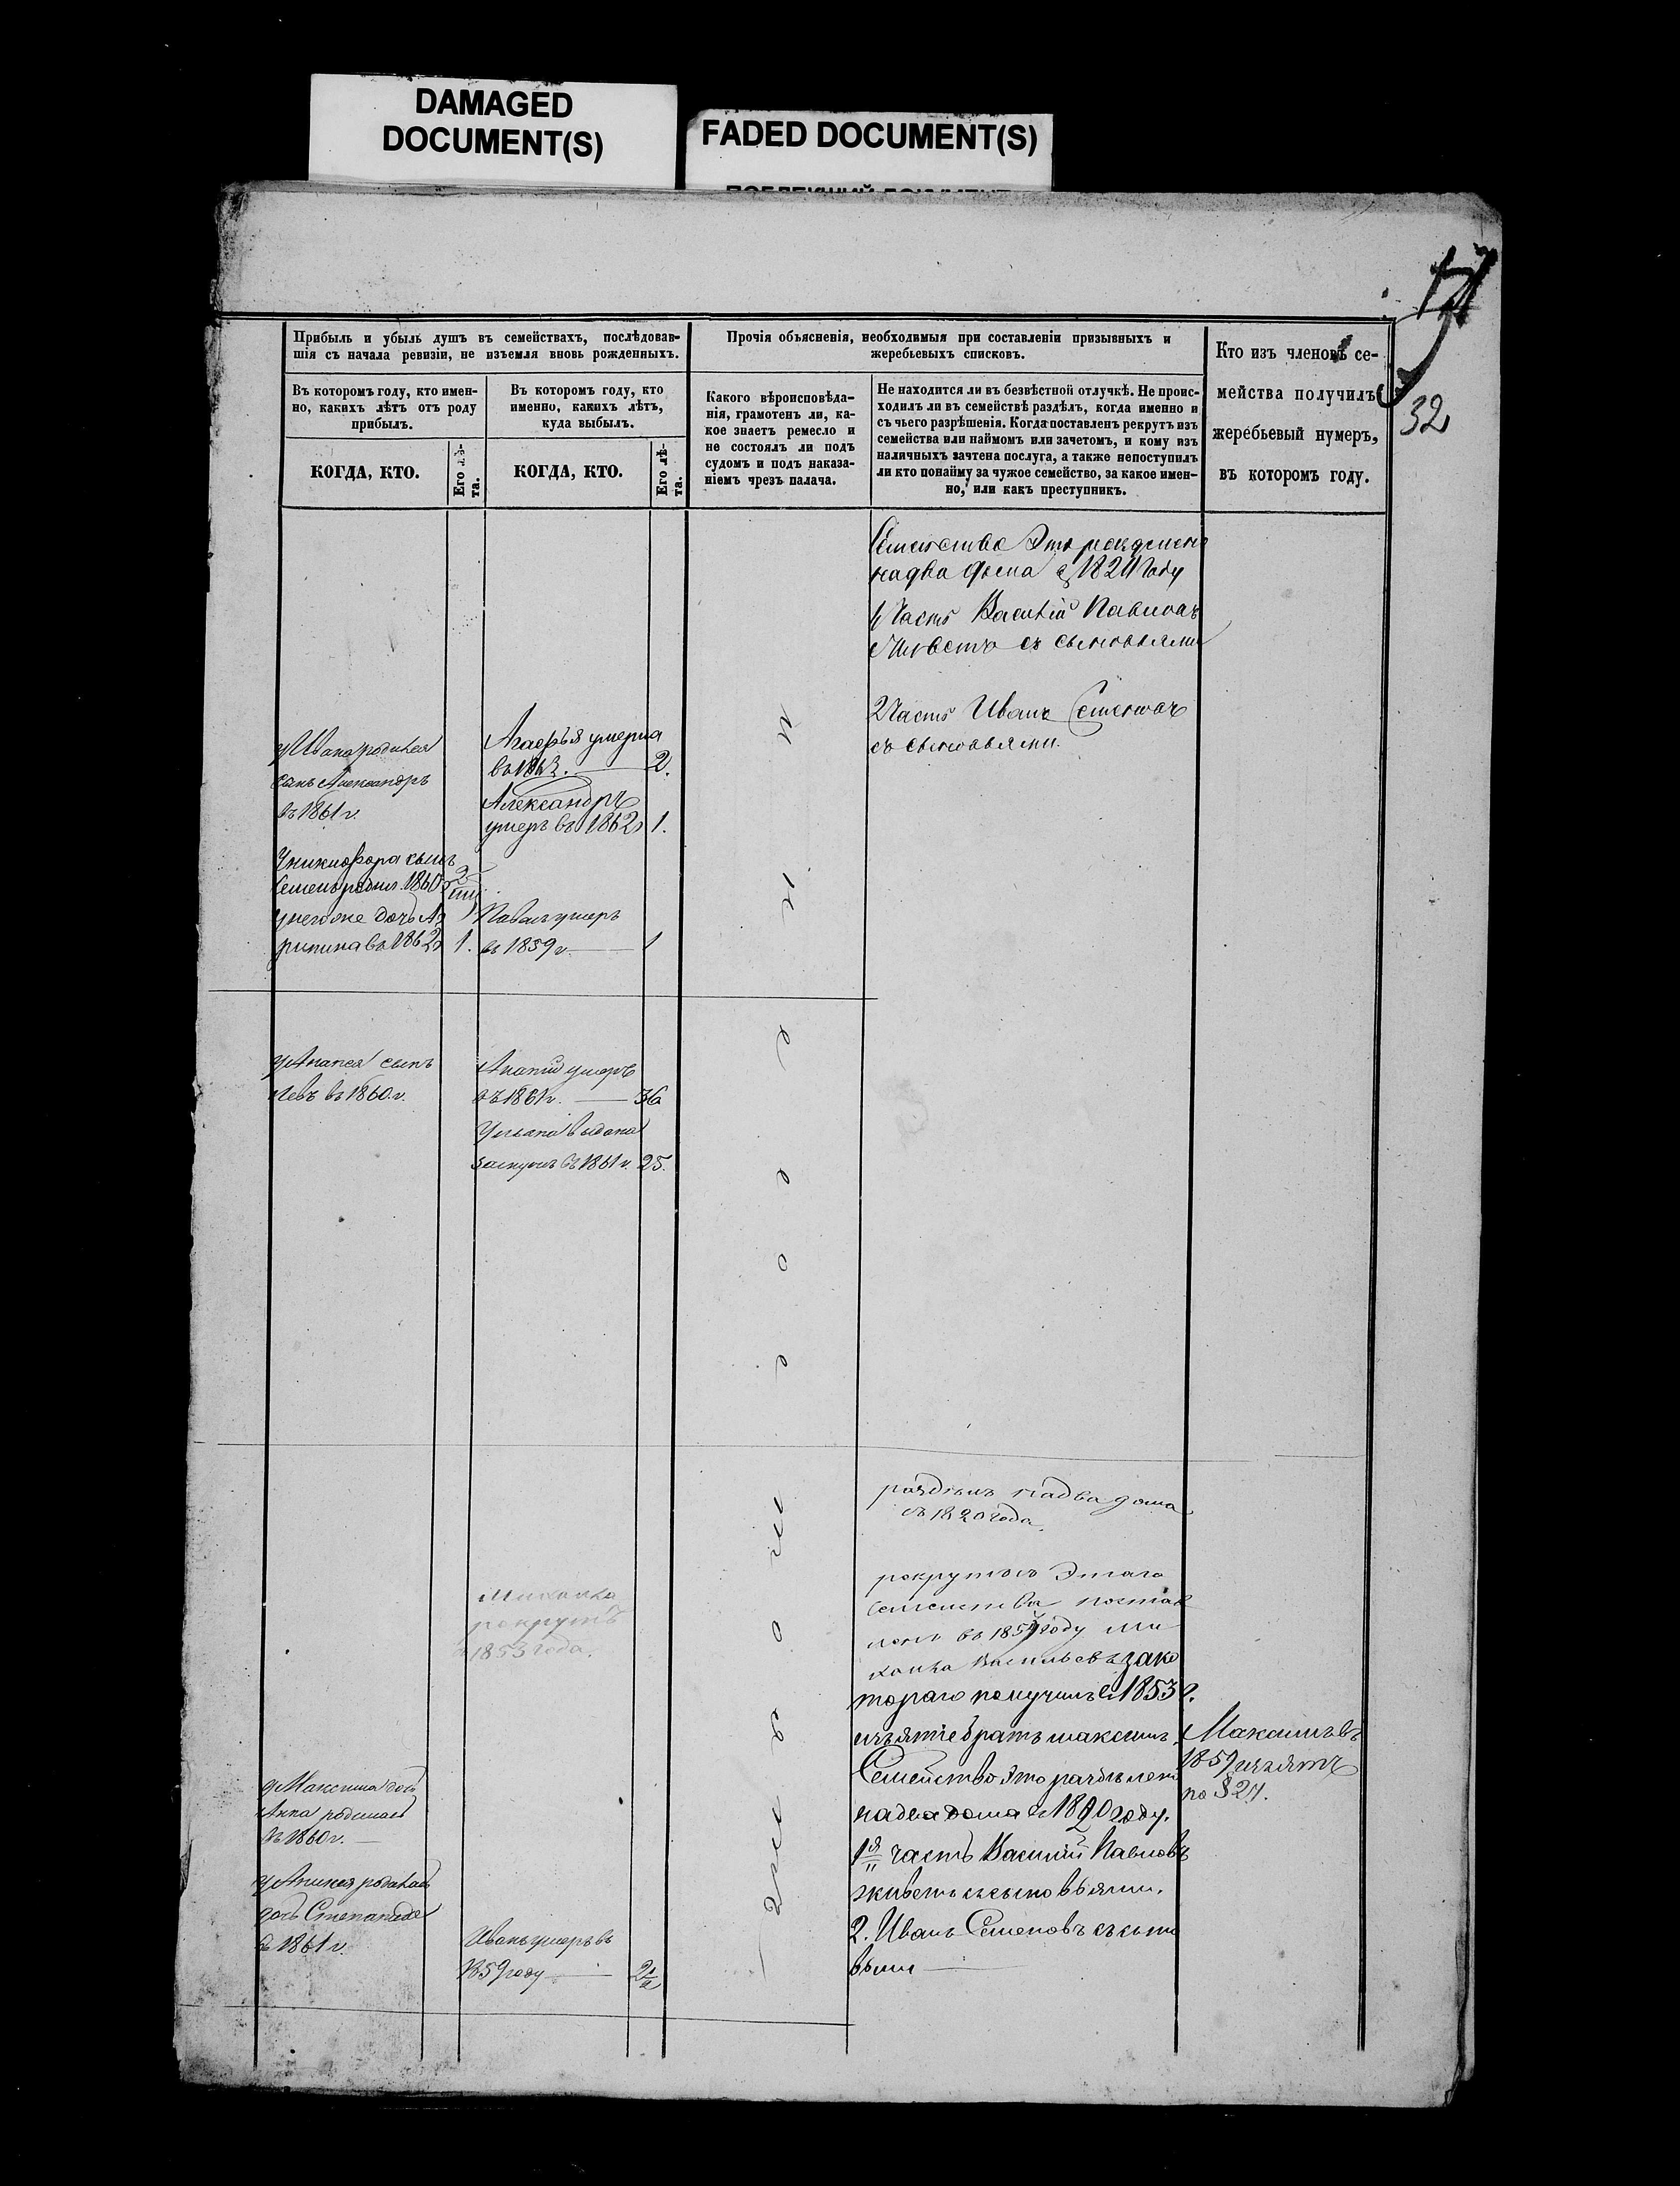 DAMAGED
DOCUMENT(S)
FADED DOCUMENT(S)
32
Прибыль и убыль душъ въ семействахъ, послѣдовав-
шія съ начала ревизіи, не изъемля вновь рожденныхъ.
Въ которомъ году, кто имен-
но, какихъ лѣтъ отъ роду
прибылъ.
КОГДА, КТО.
Его лѣ-
та.
Въ которомъ году, кто
именно, какихъ лѣтъ,
куда выбылъ.
КОГДА, КТО.
Его лѣ-
та.
Прочія объясненія, необходимыя при составленіи призывныхъ и
жеребьевыхъ списковъ.
Какого вѣроисповѣда-
нія, грамотенъ ли, ка-
кое знаетъ ремесло и
не состоялъ ли подъ
судомъ и подъ наказа-
ніемъ чрезъ палача.
Не находится ли въ безвѣстной отлучкѣ. Не проис-
ходилъ ли въ семействѣ раздѣлъ, когда именно и
съ чьего разрѣшенія. Когда поставленъ рекрутъ изъ
семейства или наймомъ или зачетомъ, и кому изъ
наличныхъ зачтена послуга, а также непоступилъ
ли кто понайму за чужое семейство, за какое имен-
но, или какъ преступникъ.
Кто изъ членовъ се-
мейства получилъ
жеребьевый нумеръ,
въ которомъ году.
Семейство Это
на два дома с 1824 году
1 Часть Василій Павловъ
живетъ съ сыновьями
2 Часть Иванъ Семеновъ
съ сыновьями.
у Ивана родился
сынъ Александръ
въ 1861 г.
у никифора сынъ
Семенъ родил. 1860
у него же дочь Аг
рипина въ 1862 1.
умерла
2.
Александръ
умеръ въ 1862 1.
Павелъ умеръ
въ 1859 г. 1
сынъ
Левъ въ 1860 г.
умеръ
въ 1861 г. 36
Ульяна выдана
замужъ въ 1861 г. 25.
раздѣлъ на два дома
съ 1820 года.
рекрутъ
1853 года.
Этаго
Семейства постав
ленъ въ году Ми
Васильевъ за ко
тораго получилъ в 1853 г.
изъятіе братъ максимъ
Семейство это раздѣлено
на два дома с 1820 году.
1я часть Василій Павловъ
живетъ съ сыновьями.
2. Иванъ Семеновъ съ сыно
вьями
Максимъ въ
1859 изъятъ
по § 24.
у Максима дочь
Анна родилась
въ 1860 г.
родилась
дочь Степанида
в 1861 г.
Иванъ умеръ въ
1859 году